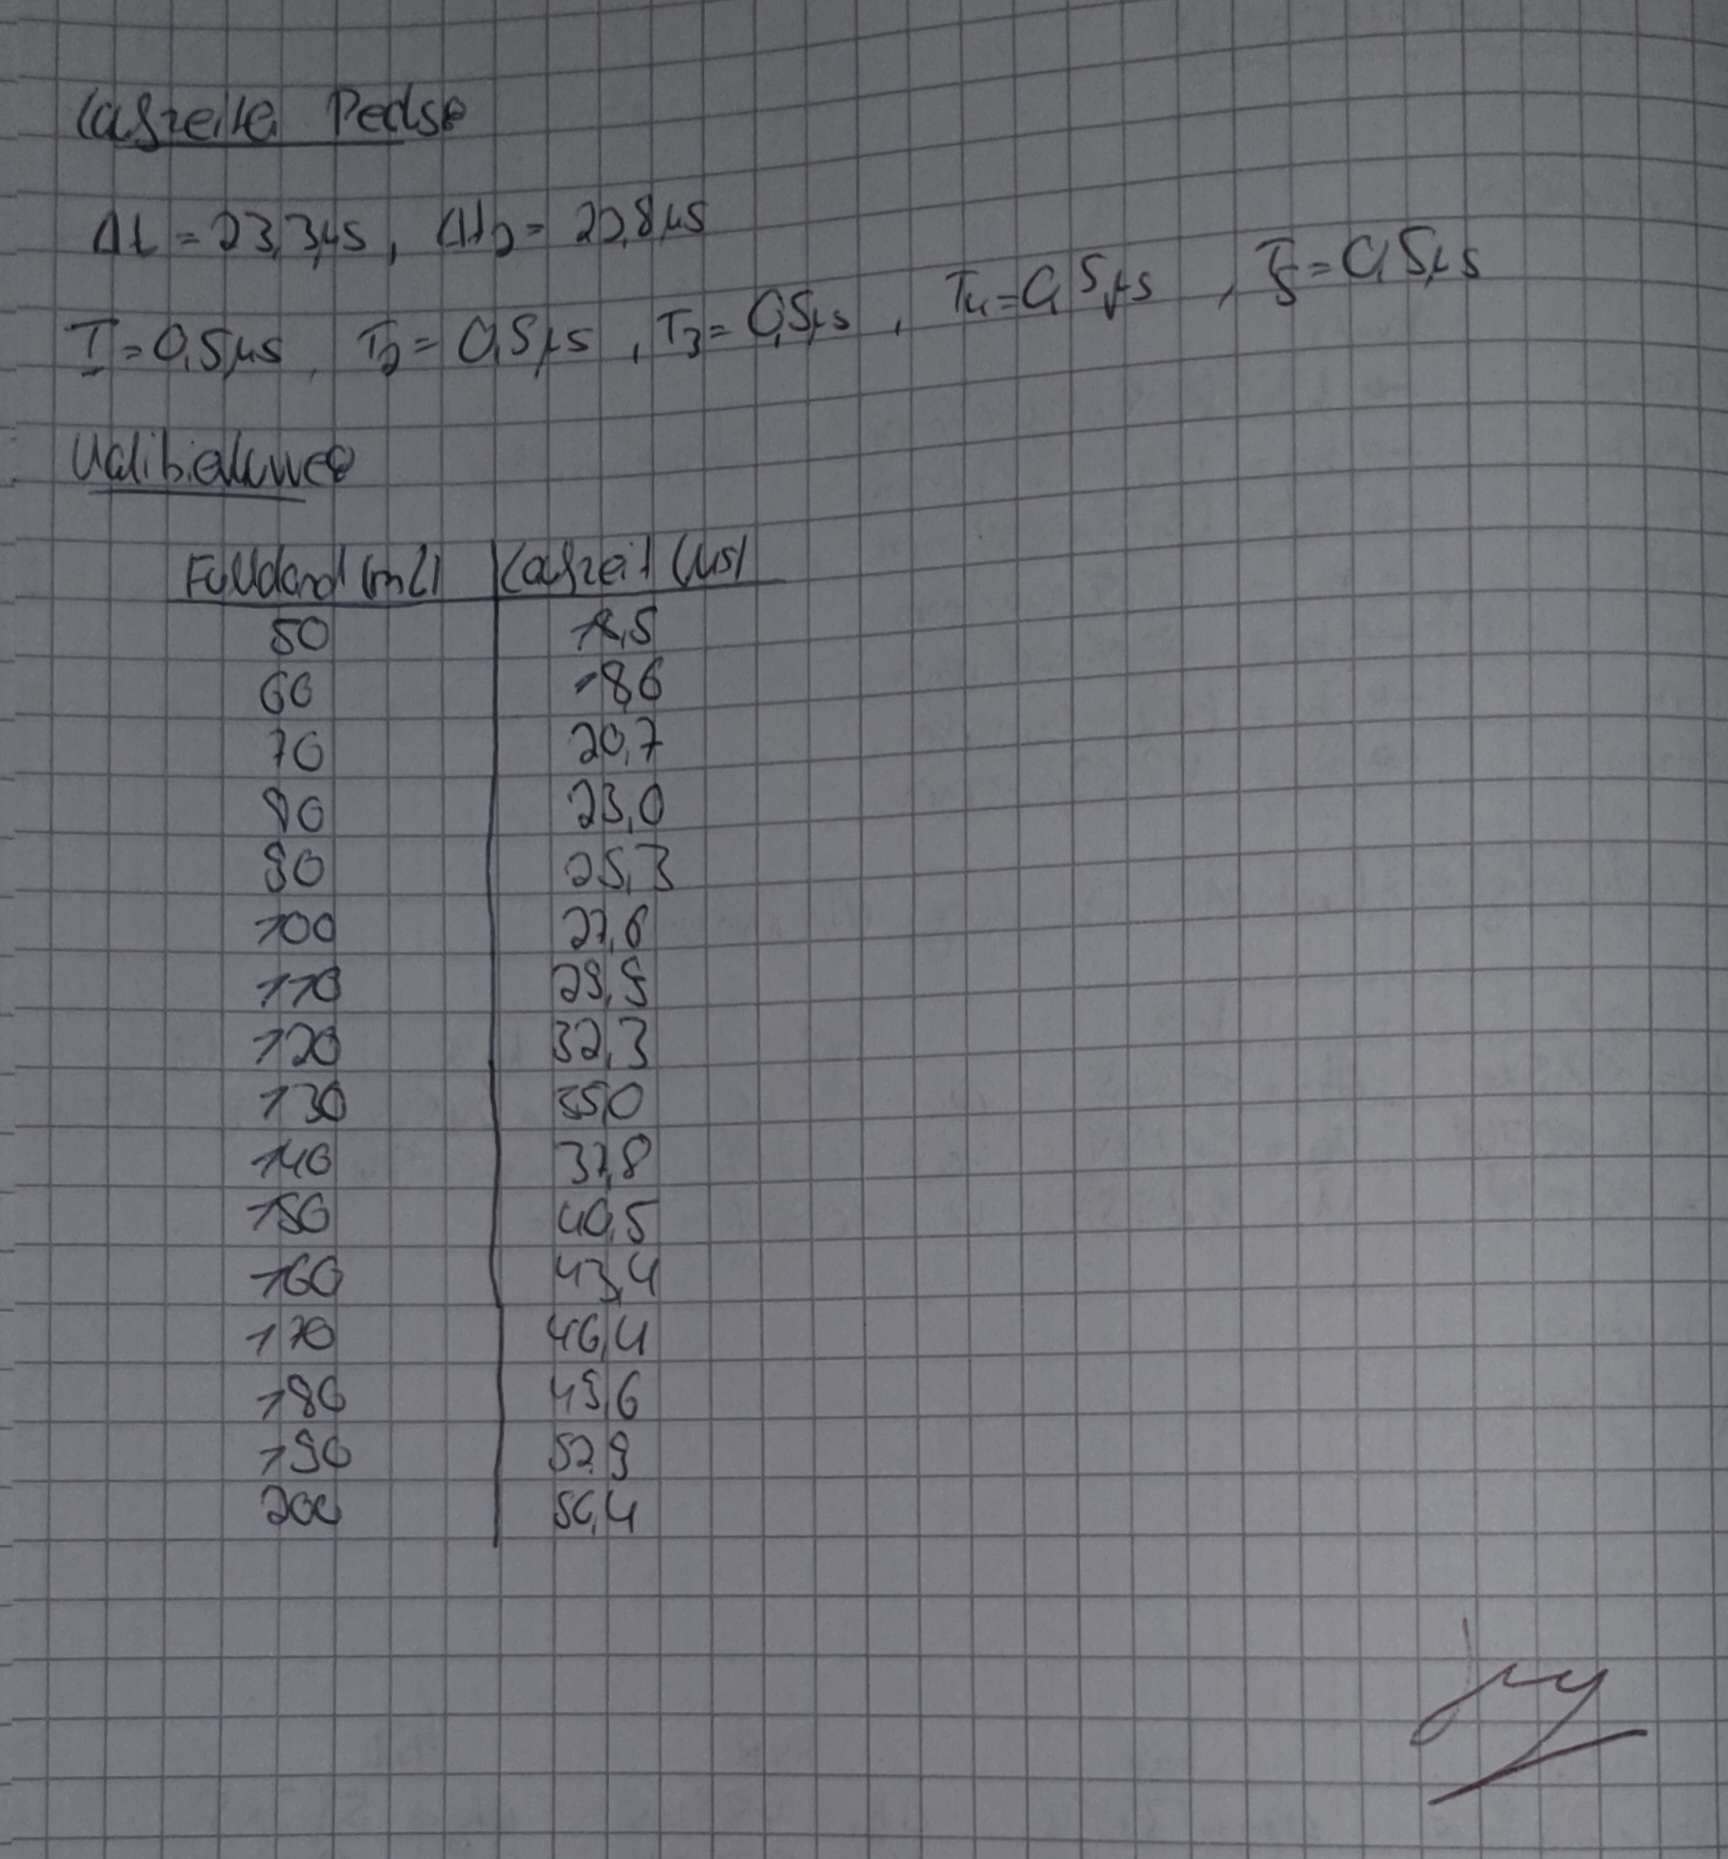 Laufzeiten Pulse
Δt = 23,3µs, Δt2 = 22,8µs
T = 0,5µs, T2 = 0,5µs, T3 = 0,5µs, T4 = 0,5µs, T5 = 0,5µs
Kalibrierung
Füllstand (mL) Laufzeit (µs)
50
60 18,6
70 20,7
80 23,0
90 25,3
100 27,6
110 29,9
120 32,3
130 35,0
140 37,8
150 40,5
160 43,4
170 46,4
180 49,6
190 52,9
200 56,4